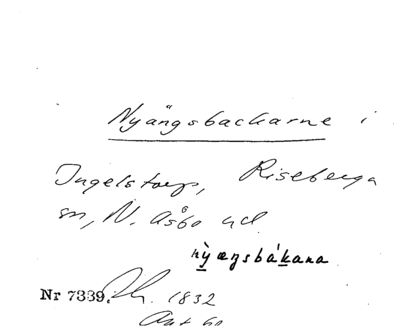 Nyängsbackarne i
Ingelstorp, Riseberga
sn, N. Åsbo hd.
nỳængsbákana
Nr 7339. 1832